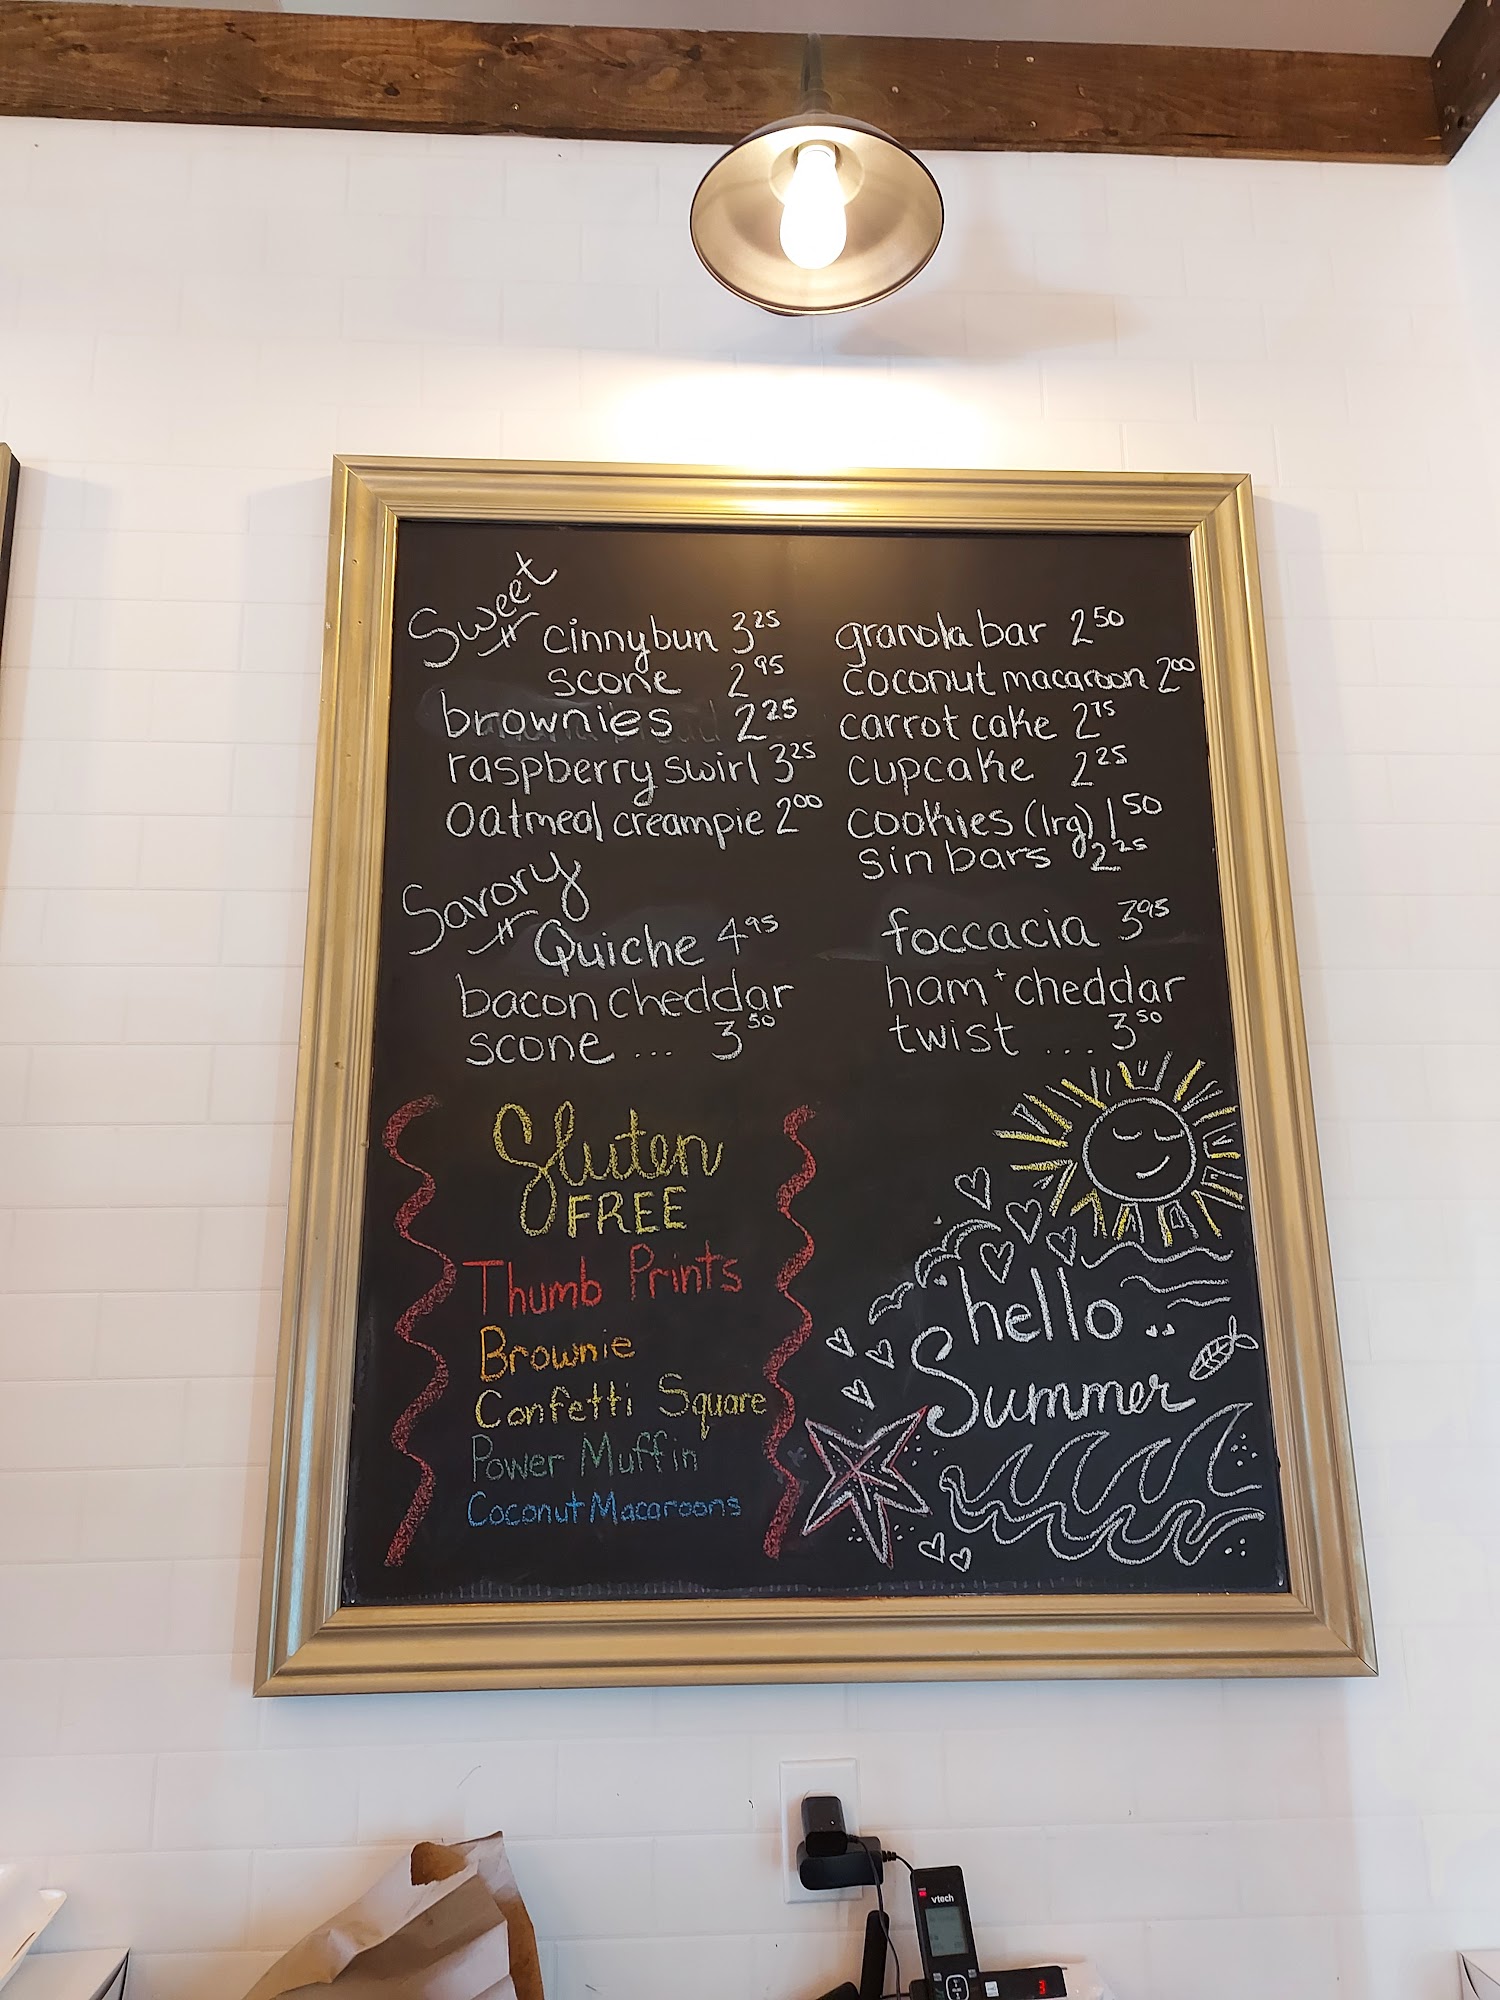 Sweet
cinnybun 3 25
scone 2 95
brownies 2 25
raspberry swirl 3 25
oatmeal creampie 2 00
granola bar 2 50
coconut macaroon 2 00
carrot cake 2 75
cupcake 2 25
cookies (lrg) 1 50
sin bars 2 25
Savory
Quiche 4 95
bacon cheddar
scone ... 3 50
foccacia 3 95
ham + cheddar
twist ... 3 50
Gluten
FREE
Thumb Prints
Brownie
Confetti Square
Power Muffin
Coconut Macaroons
hello
Summer
vtech
3